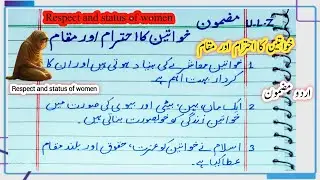 Respect and status of women
U.L.Z
مضمون
خواتین کا احترام اور مقام
خواتین کا احترام اور مقام
Respect and status of women
اردو مضمون
1 خواتین معاشرے کی بنیاد ہوتی ہیں اور ان کا
کردار بہت اہم ہے۔
2 ایک ماں، بہن، بیٹی اور بیوی کی صورت میں
خواتین زندگی کو خوبصورت بناتی ہیں۔
3 اسلام نے خواتین کو عزت، حقوق اور بلند مقام
عطا کیا ہے۔